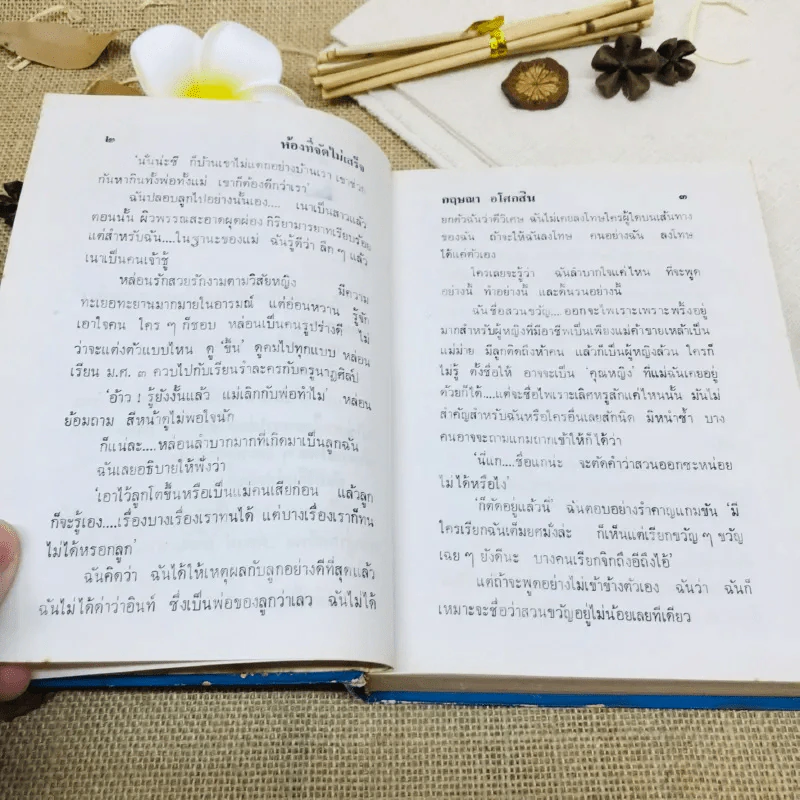 ๒ ห้องที่จัดไม่เสร็จ
'นั่นน่ะซี ก็บ้านเขาไม่แตกอย่างบ้านเรา เขาช่วย
กันหากินทั้งพ่อทั้งแม่ เขาก็ต้องดีกว่าเรา'
ฉันปลอบลูกไปอย่างนั้นเอง.... เนาเป็นสาวแล้ว
ตอนนั้น ผิวพรรณสะอาดผุดผ่อง กิริยามารยาทเรียบร้อย
แต่สำหรับฉัน....ในฐานะของแม่ ฉันรู้ดีว่า ลึก ๆ แล้ว
เนาเป็นคนเจ้าชู้
หล่อนรักสวยรักงามตามวิสัยหญิง มีความ
ทะเยอทะยานมากมายในอารมณ์ แต่อ่อนหวาน รู้จัก
เอาใจคน ใคร ๆ ก็ชอบ หล่อนเป็นคนรูปร่างดี ไม่
ว่าจะแต่งตัวแบบไหน ดู 'ขึ้น' ดูคมไปทุกแบบ หล่อน
เรียน ม.ศ. ๓ ควบไปกับเรียนรำละครกับครูนาฏศิลป์
'อ้าว ! รู้ยังงั้นแล้ว แม่เลิกกับพ่อทำไม' หล่อน
ย้อมถาม สีหน้าดูไม่พอใจนัก
ก็แน่ละ....หล่อนลำบากมากที่เกิดมาเป็นลูกฉัน
ฉันเลยอธิบายให้ฟังว่า
'เอาไว้ลูกโตขึ้นหรือเป็นแม่คนเสียก่อน แล้วลูก
ก็จะรู้เอง....เรื่องบางเรื่องเราทนได้ แต่บางเรื่องเราก็ทน
ไม่ได้หรอกลูก'
ฉันคิดว่า ฉันได้ให้เหตุผลกับลูกอย่างดีที่สุดแล้ว
ฉันไม่ได้ด่าว่าอินท์ ซึ่งเป็นพ่อของลูกว่าเลว ฉันไม่ได้
กฤษณา อโศกสิน ๓
ยกตัวฉันว่าดีวิเศษ ฉันไม่เคยลงโทษใครผู้ใดบนเส้นทาง
ของฉัน ถ้าจะให้ฉันลงโทษ คนอย่างฉัน ลงโทษ
ได้แต่ตัวเอง
ใครเลยจะรู้ว่า ฉันลำบากใจแค่ไหน ที่จะพูด
อย่างนี้ ทำอย่างนี้ และดิ้นรนอย่างนี้
ฉันชื่อสวนขวัญ....ออกจะไพเราะเพราะพริ้งอยู่
มากสำหรับผู้หญิงที่มีอาชีพเป็นเพียงแม่ค้าขายเหล้าเป็น
แม่ม่าย มีลูกติดถึงห้าคน แล้วก็เป็นผู้หญิงล้วน ใครก็
ไม่รู้ ตั้งชื่อให้ อาจจะเป็น 'คุณหญิง' ที่แม่ฉันเคยอยู่
ด้วยก็ได้....แต่จะชื่อไพเราะเลิศหรูสักแค่ไหนนั้น มันไม่
สำคัญสำหรับฉันหรือใครอื่นเลยสักนิด มิหนำซ้ำ บาง
คนอาจจะถามแกมถากเข้าให้ก็ได้ว่า
'นี่แก....ชื่อแกน่ะ จะตัดคำว่าสวนออกซะหน่อย
ไม่ได้หรือไง'
'ก็ตัดอยู่แล้วนี่' ฉันตอบอย่างรำคาญแกมขัน 'มี
ใครเรียกฉันเต็มยศมั่งล่ะ ก็เห็นแต่เรียกขวัญ ๆ ขวัญ
เฉย ๆ ยังดีนะ บางคนเรียกจิกถึงอีถึงไอ้'
แต่ถ้าจะพูดอย่างไม่เข้าข้างตัวเอง ฉันว่า ฉันก็
เหมาะจะชื่อว่าสวนขวัญอยู่ไม่น้อยเลยทีเดียว